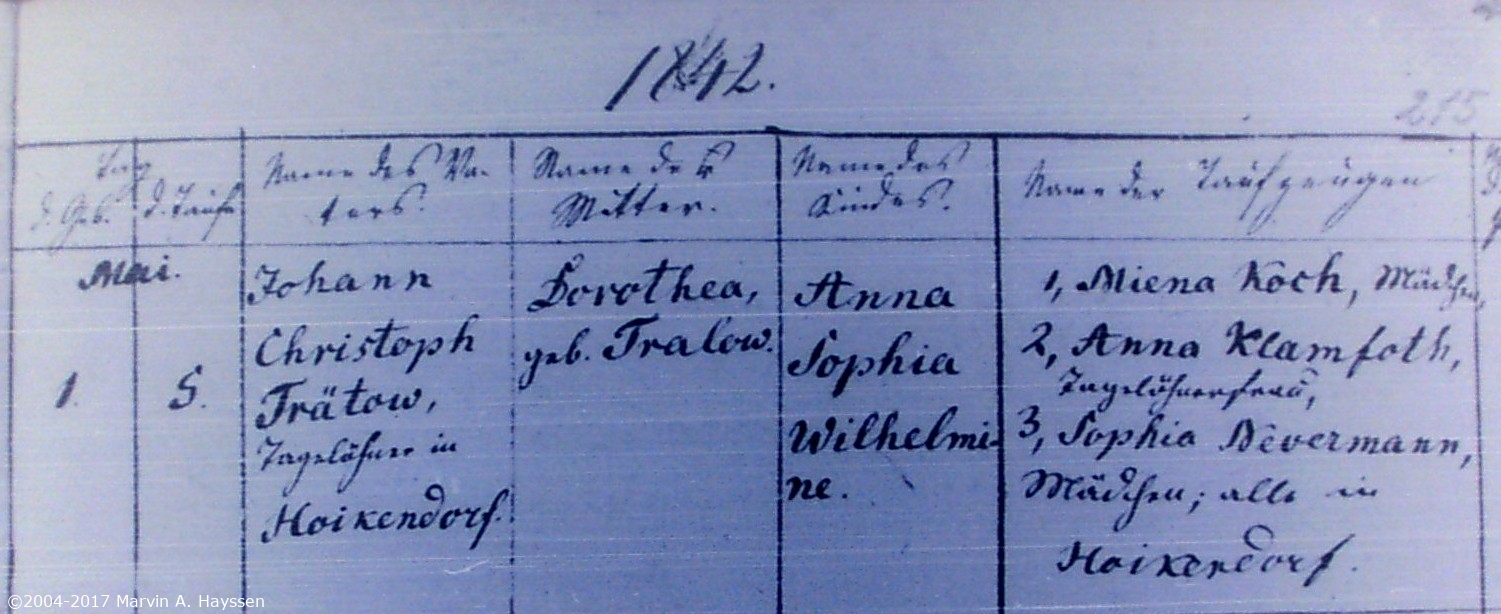 1842.
215
Tag
d. Geb. d. Taufe
Name des Va-
ters.
Name der
Mutter.
Name des
Kindes.
Name der Taufzeugen
Mai.
1. 5.
Johann
Christoph
Trätow,
Tagelöhner in
Hoikendorf.
Dorothea,
geb. Tralow.
Anna
Sophia
Wilhelmi-
ne.
1, Miena Koch, Mädchen,
2, Anna Klamfoth,
Tagelöhnerfrau,
3, Sophia Nevermann,
Mädchen; alle in
Hoikendorf.
©2004-2017 Marvin A. Hayssen